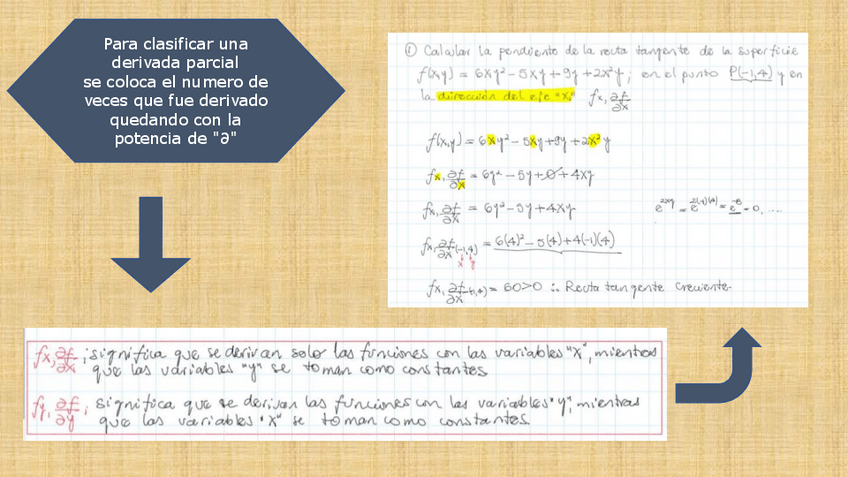 Para clasificar una
derivada parcial
se coloca el numero de
veces que fue derivado
quedando con la
potencia de "∂"
① Calcular la pendiente de la recta tangente de la superficie
f(x,y) = 6xy² - 5xy + 9y + 2x²y ; en el punto P(-1,4) y en
la dirección del eje "x" fx, ∂f/∂x
f(x,y) = 6xy² - 5xy + 9y + 2x²y
fx, ∂f/∂x = 6y² - 5y + 0 + 4xy
fx, ∂f/∂x = 6y² - 5y + 4xy
fx, ∂f/∂x (-1,4) = 6(4)² - 5(4) + 4(-1)(4)
x y
fx, ∂f/∂x (-1,4) = 60 > 0 ∴ Recta tangente creciente.
fx, ∂f/∂x ; significa que se derivan solo las funciones con las variables "x", mientras
que las variables "y" se toman como constantes.
fy, ∂f/∂y ; significa que se derivan las funciones con las variables "y", mientras
que las variables "x" se toman como constantes.